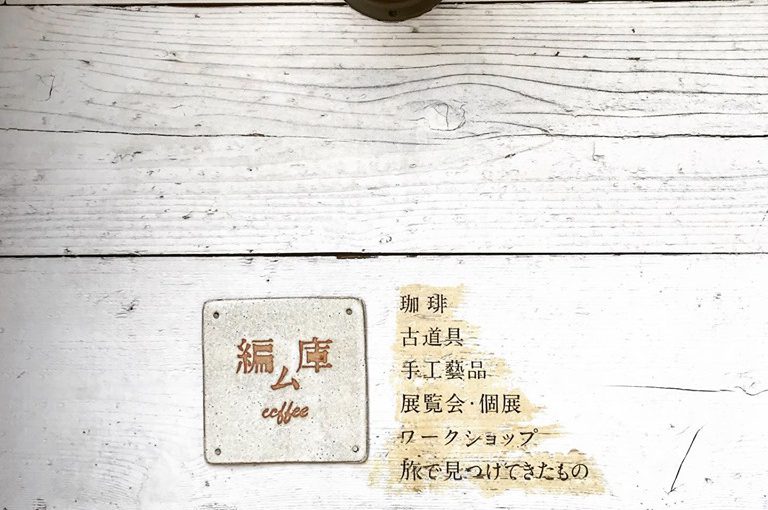 編ム庫
coffee
珈琲
古道具
手工藝品
展覧会・個展
ワークショップ
旅で見つけてきたもの